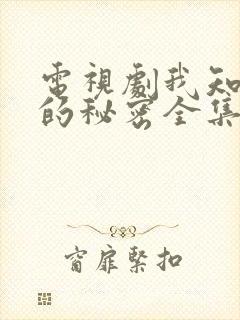 電視劇我知
的秘密全集
窗扉緊扣